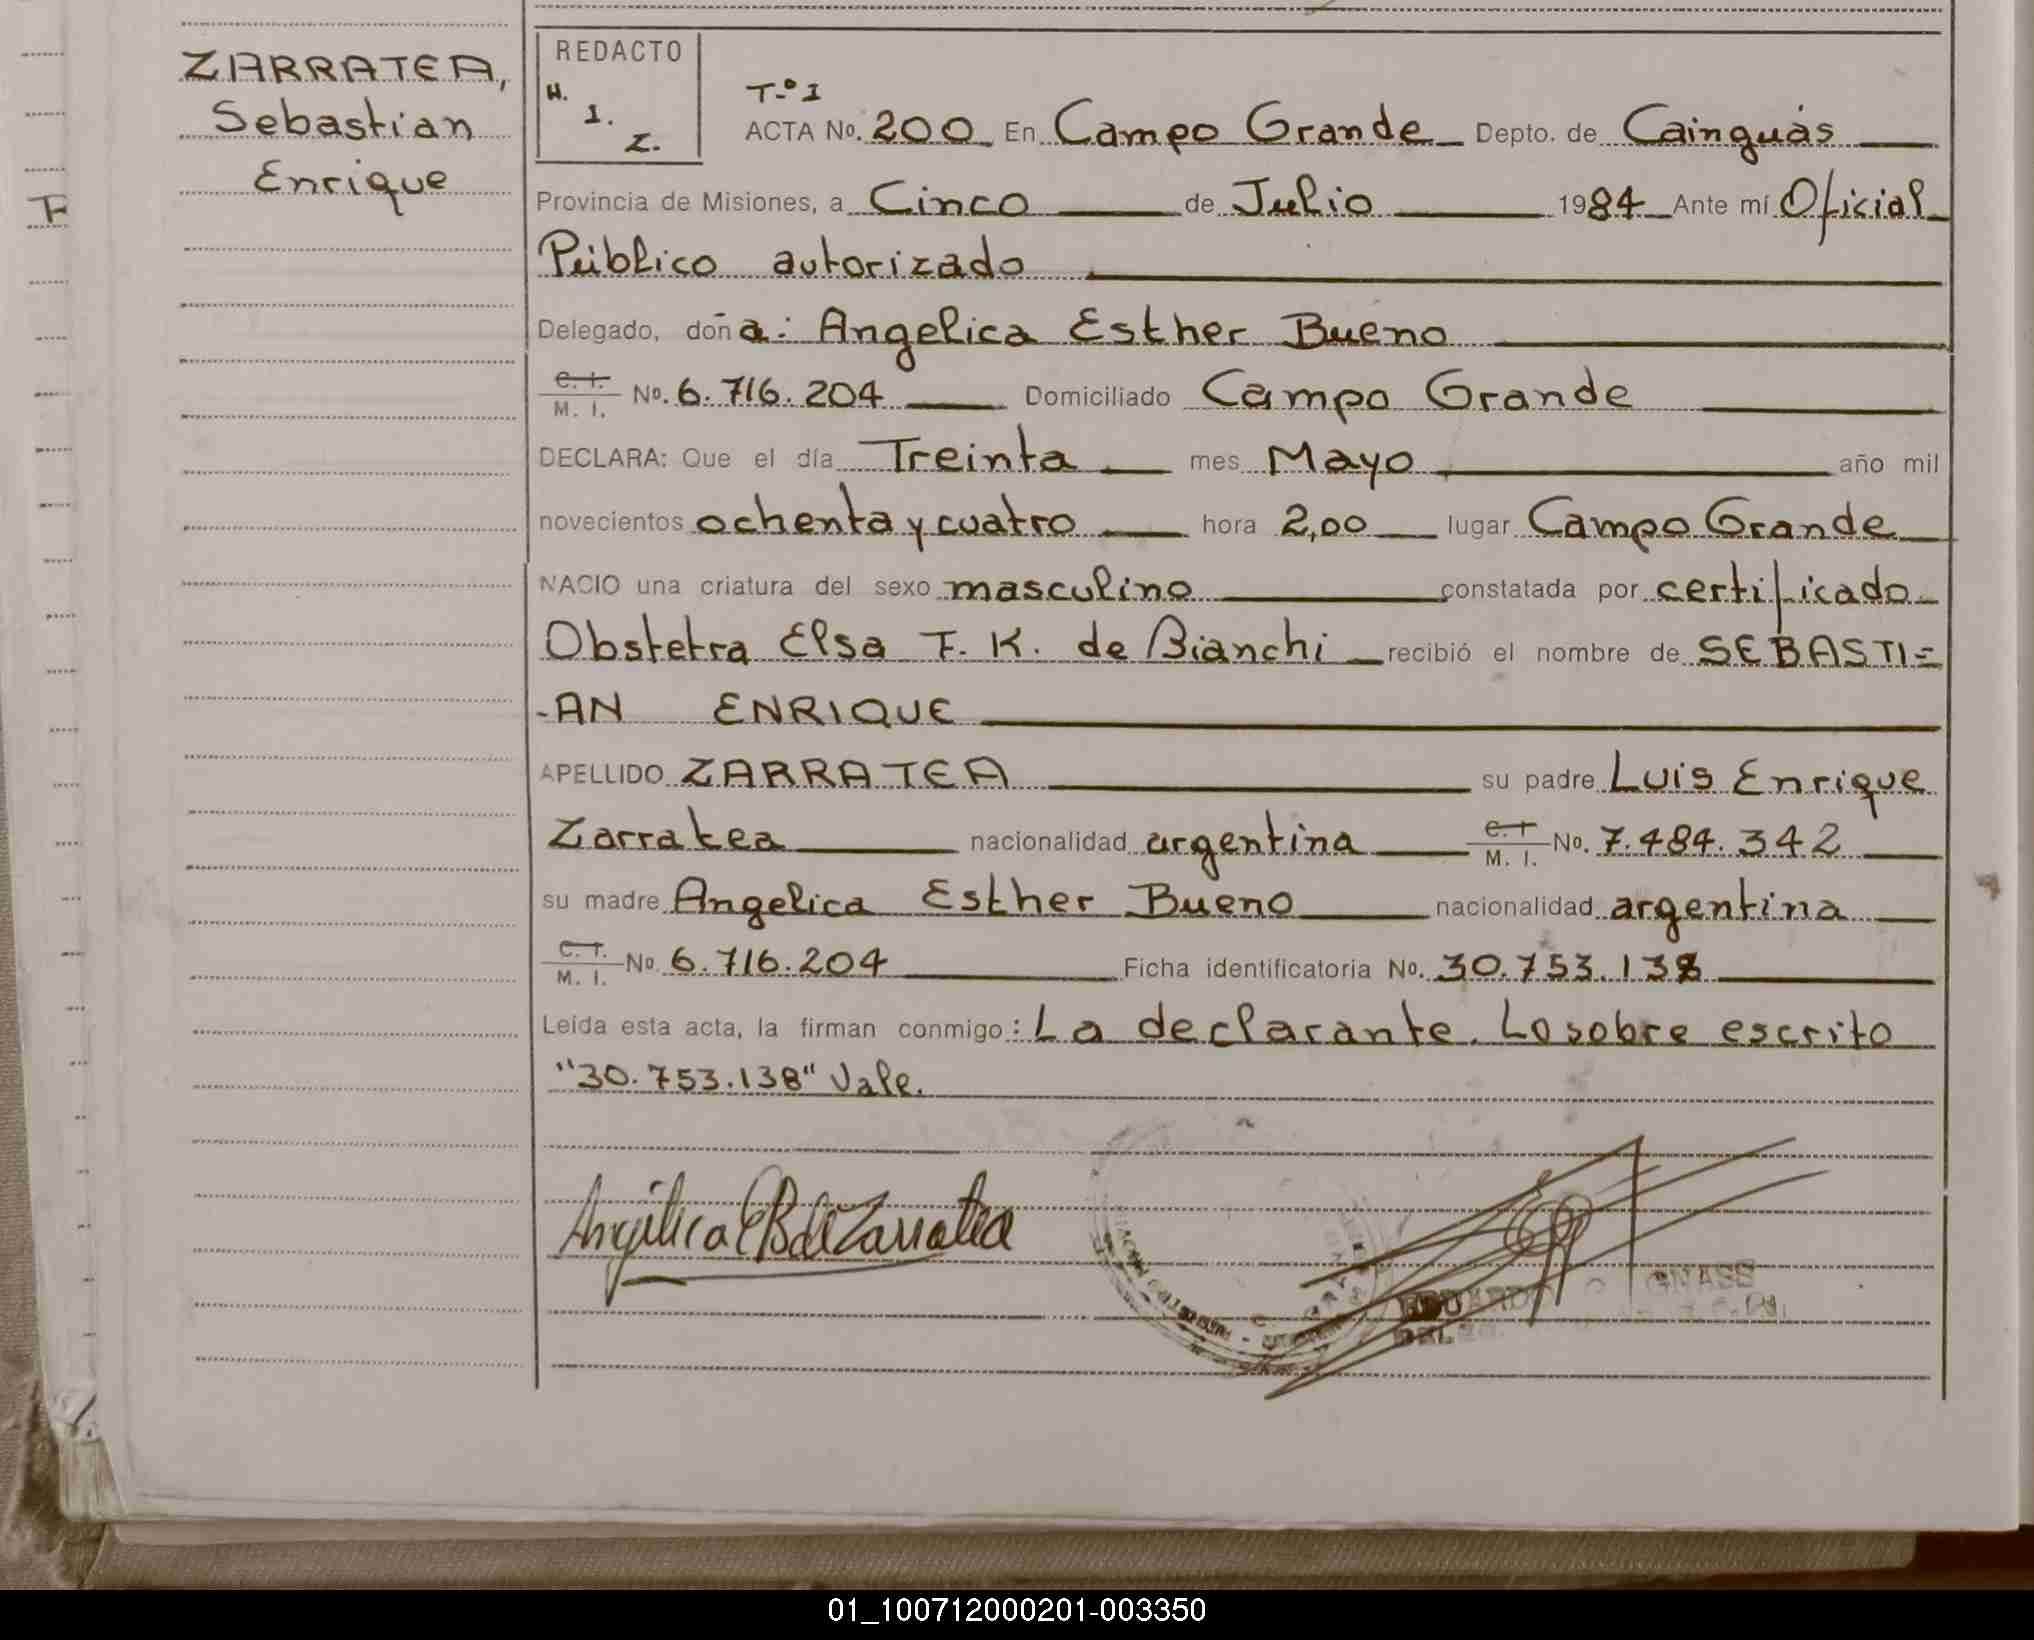 ZARRATEA,
Sebastian
Enrique
REDACTO
H.
I.
Z.
T-º I
ACTA No. 200 En Campo Grande Depto. de Cainguàs
Provincia de Misiones, a Cinco de Julio 1984 Ante mí Oficial
Público autorizado
Delegado, doña: Angelica Esther Bueno
C. I. / M. I. No. 6.716.204 Domiciliado Campo Grande
DECLARA: Que el día Treinta mes Mayo año mil
novecientos ochenta y cuatro hora 2,00 lugar Campo Grande
NACIO una criatura del sexo masculino constatada por certificado
Obstetra Elsa F. K. de Bianchi recibió el nombre de SEBASTI=
-AN ENRIQUE
APELLIDO ZARRATEA su padre Luis Enrique
Zarratea nacionalidad argentina C. I. / M. I. No. 7.484.342
su madre Angelica Esther Bueno nacionalidad argentina
C. I. / M. I. No. 6.716.204 Ficha identificatoria No. 30.753.138
Leída esta acta, la firman conmigo: La declarante. Lo sobre escrito
"30.753.138" Vale.
Angélica E B de Zarratea
GNASS
01_100712000201-003350